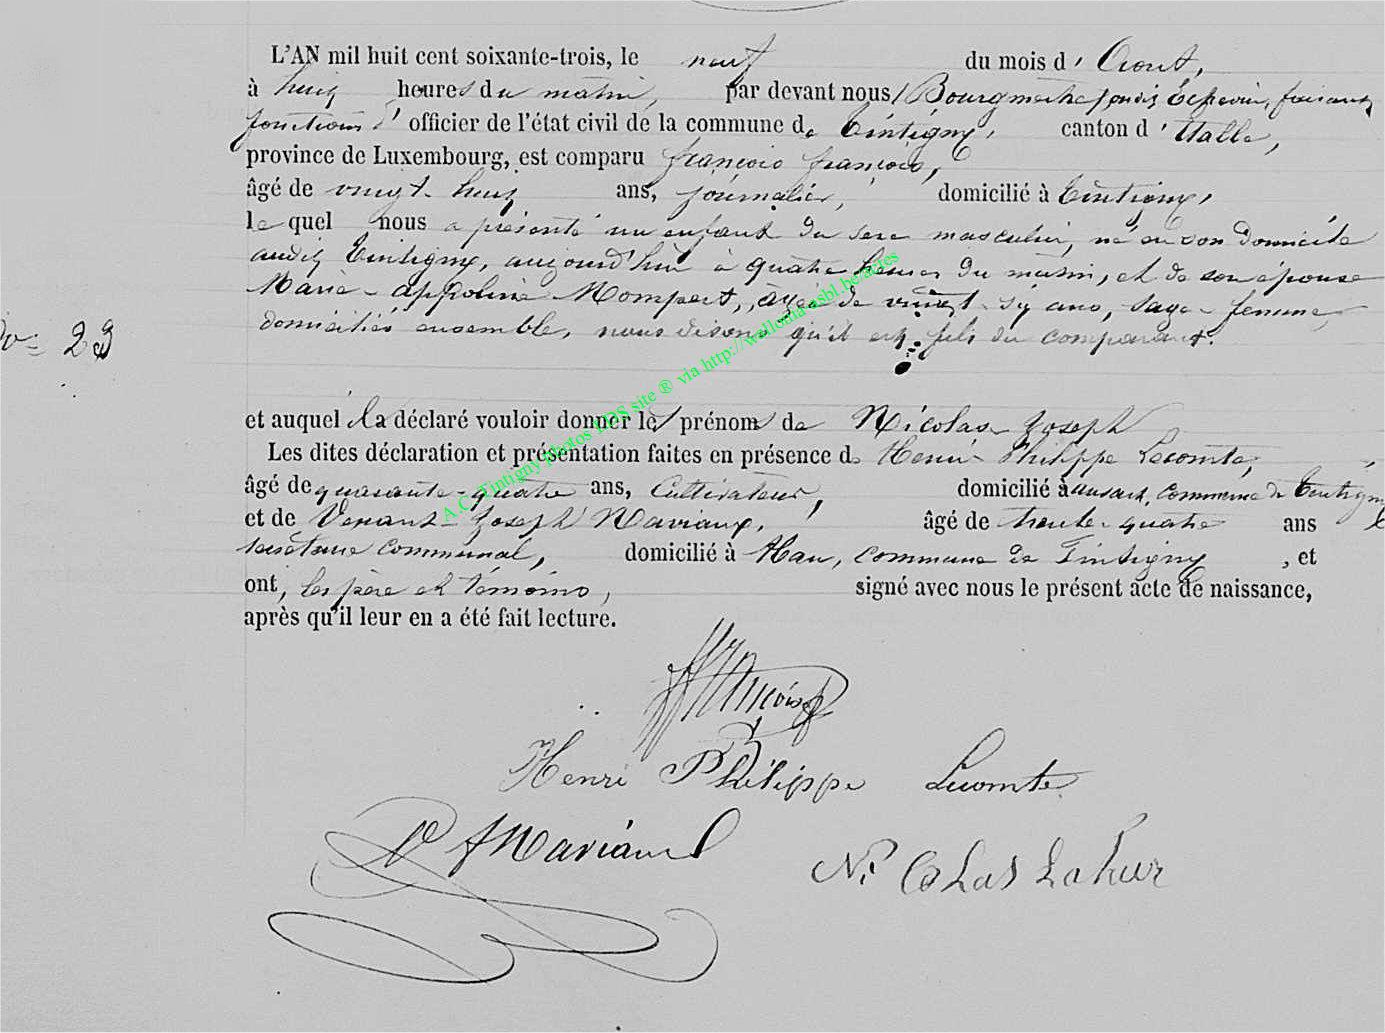 L'AN mil huit cent soixante-trois, le neuf du mois d'Aout,
à huit heures du matin, par devant nous Bourgmestre, Echevin, faisant
fonctions d'officier de l'état civil de la commune de Tintigny, canton d'Etalle,
province de Luxembourg, est comparu françois françois,
âgé de vingt-huit ans, journalier, domicilié à Tintigny,
le quel nous a présenté un enfant du sexe masculin, né en son domicile
audit Tintigny, aujourd'hui à quatre heures du matin, et de son épouse
Marie-Appoline Mompert, agée de vingt-six ans, sage-femme,
domiciliés ensemble, nous disons qu'il est fils du comparant.
No 23
et auquel il a déclaré vouloir donner les prénoms de Nicolas Joseph
Les dites déclaration et présentation faites en présence de Henri-Philippe Lecomte,
âgé de quarante-quatre ans, Cultivateur, domicilié à ansart, commune de Tintigny
et de Venant-Joseph Naviaux, âgé de trente-quatre ans
secrétaire communal, domicilié à Han, commune de Tintigny, et
ont, les père et témoins, signé avec nous le présent acte de naissance,
après qu'il leur en a été fait lecture.
françois
Henri Philippe Lecomte
V J Naviaux
Nicolas Lahur
A.C. Tintigny photos LDS site ® via http://wallonia-asbl.be/actes